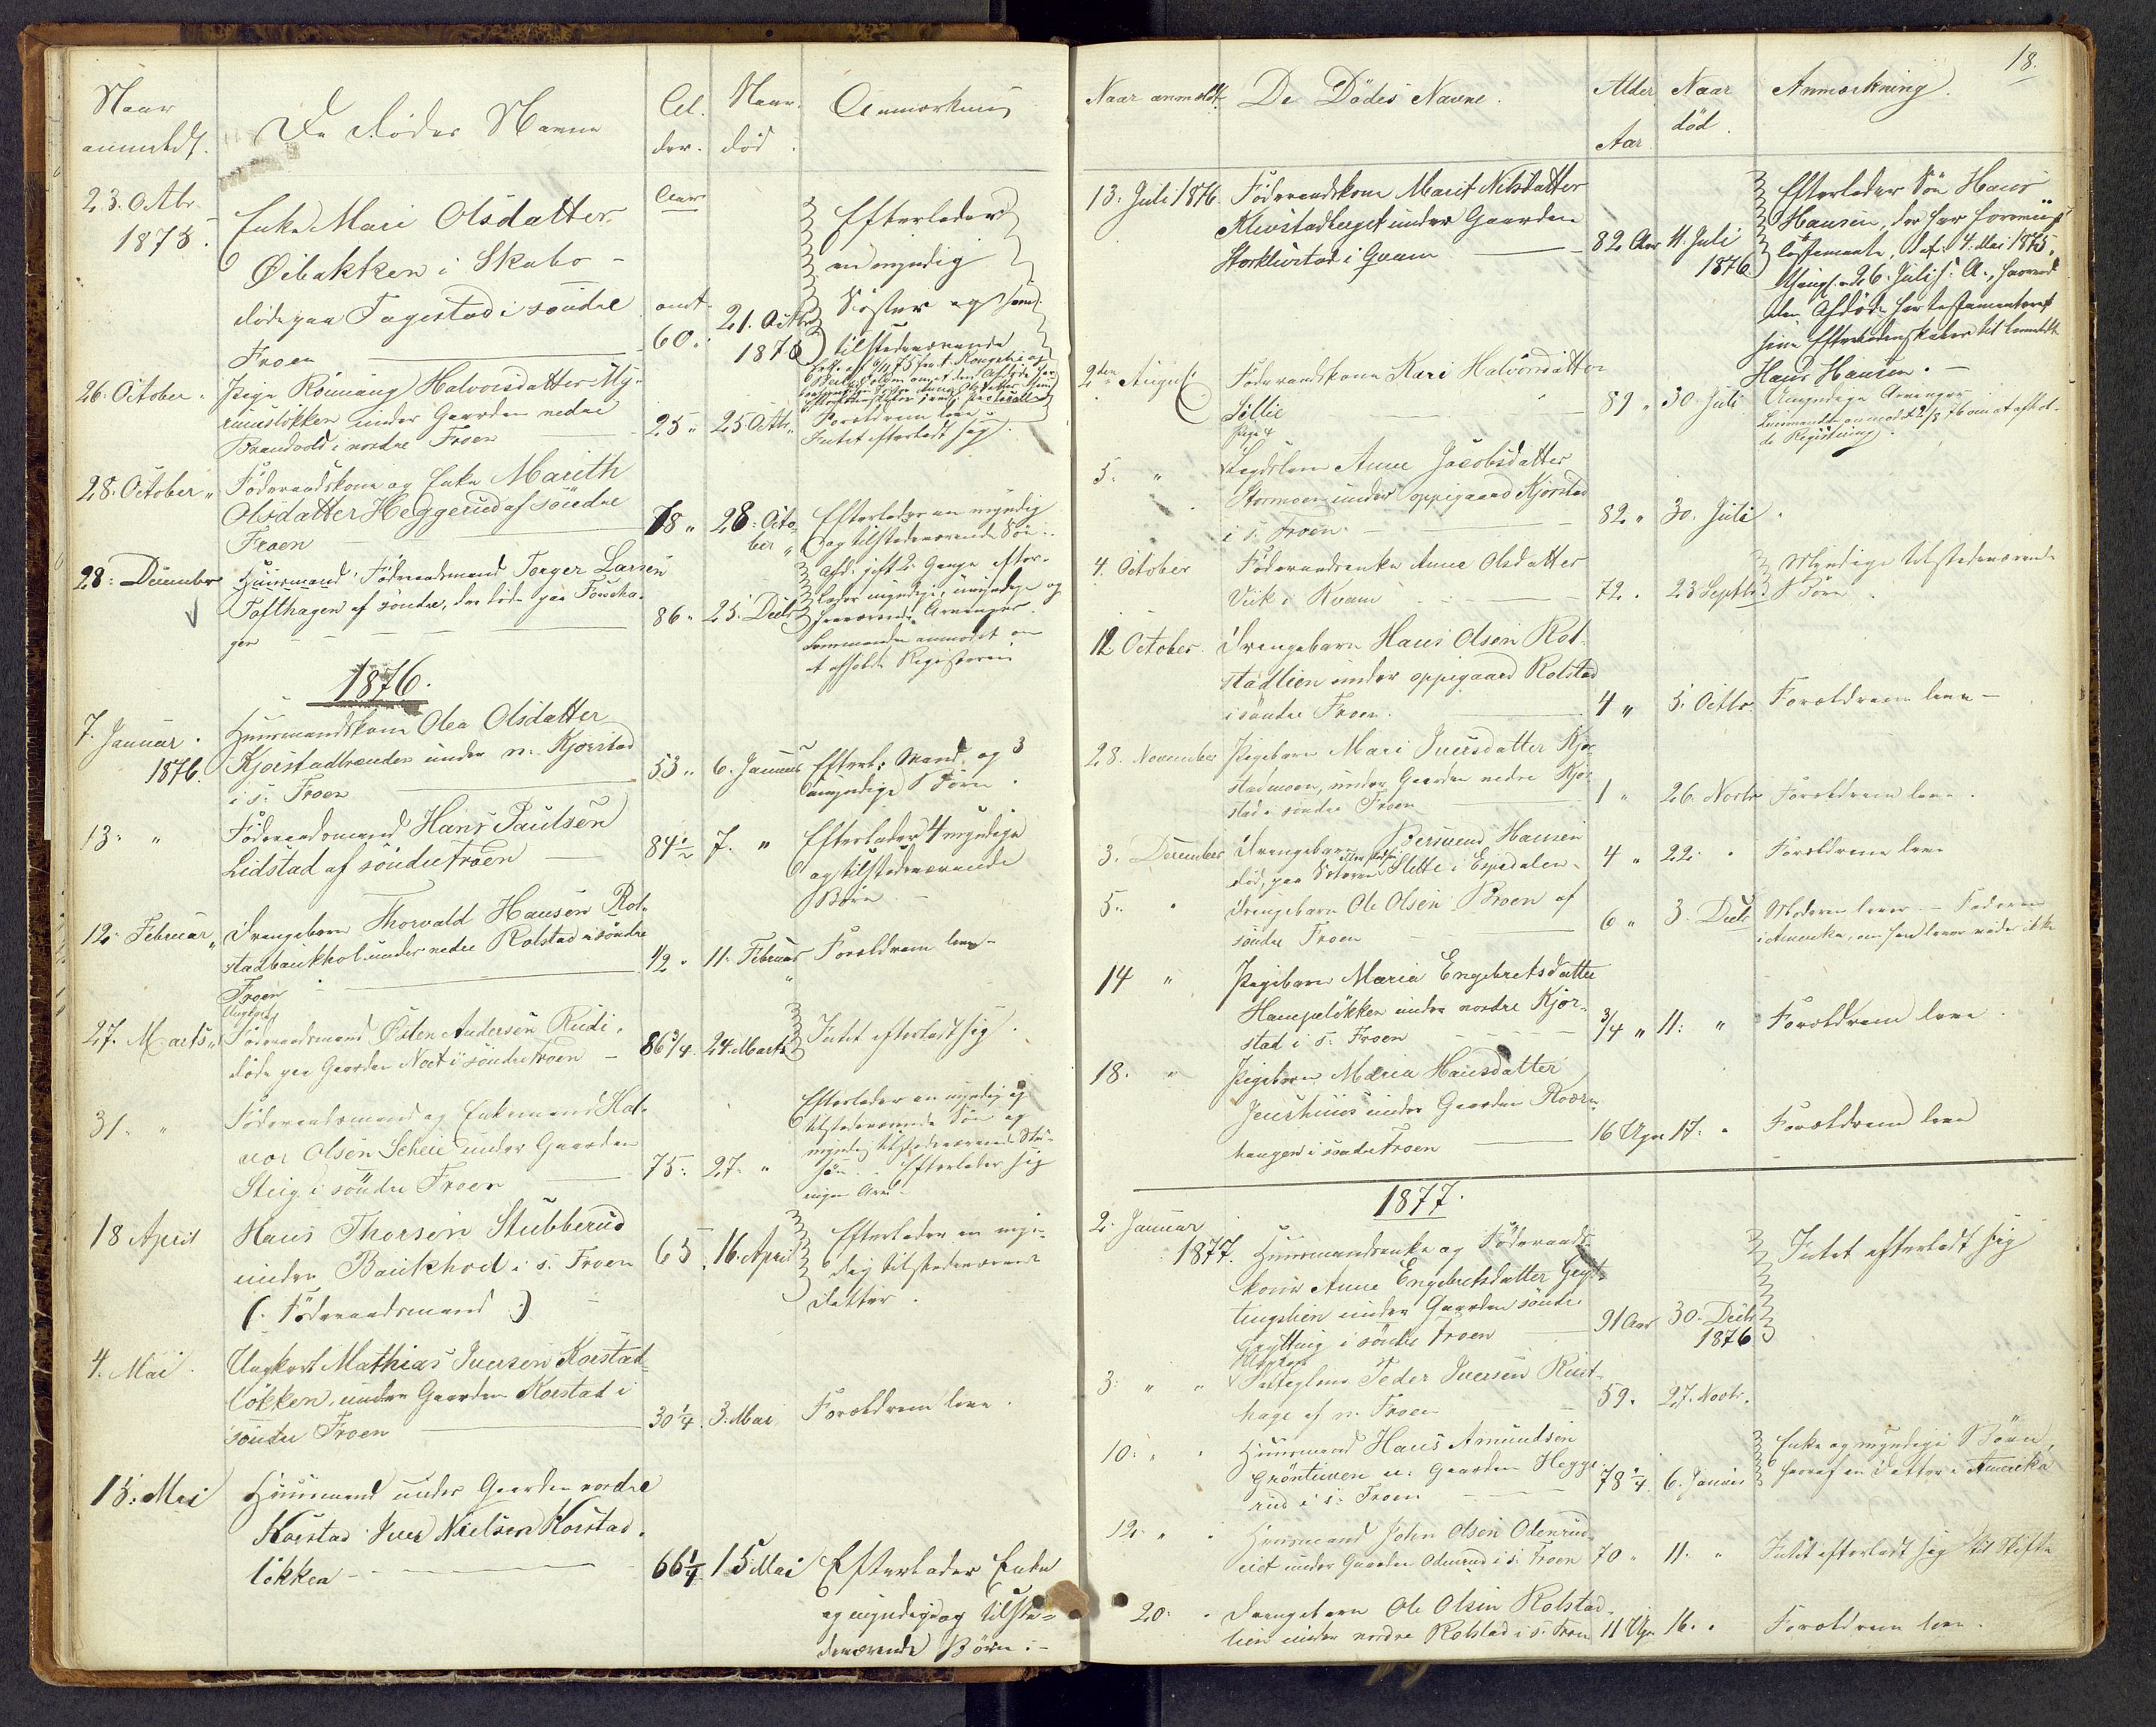 Naar anmeldt.
De Dødes Navne
Alder.
Naar død.
Anmærkning
Aar
23. Octbr. 1875.
Enke Mari Olsdatter
Øibakken i Skabo -
døde paa Fagestad i söndre
Froen
omt. 60.
21. Octbr 1875
Efterlader
en myndig
Søster
tilstedeværende
26. October "
Pige Rönnaug Halvorsdatter
under Gaarden nedre
Brandvold i nordre Froen
25 "
25 Octbr "
Forældrene leve
Intet efterladt sig.
28. October "
Föderaadskone og Enke Marith
Olsdatter Heggerud af söndre
Froen
78 "
28. October "
Efterlader en myndig
og tilstedeværende Søn.
28. December
Huusmand Föderaadsmand Torger Larsen
Tofthagen af söndre, der døde paa
86 "
25. Decbr
Afd. gift 2 Gange efter-
lader myndige, umyndige og
fraværende Arvinger.
Lensmanden anmodet om
at afholde Registrering
1876.
7. Januar 1876.
Huusmandskone Olea Olsdatter
Kjorstadbraaden under n. Kjorstad
i s. Froen
53 "
6. Januar
Efterl. Mand og 3
umyndige Børn
13. "
Föderaadsmand Hans Paulsen
Lidstad af söndre Froen
84½
7. "
Efterlader 4 myndige
og tilstedeværende
Børn. -
12. Februar "
Drengebarn Thorvald Hansen Rol-
stadbaukhol under nedre Rolstad i söndre
Froen
½ "
11. Februar "
Forældrene leve -
27. Marts "
Ungkarl
Föderaadsmand Østen Andersen Rudi,
døde paa Gaarden Noet i söndre Froen -
86¾
24. Marts
Intet efterladt sig.
31. "
Föderaadsmand og Enkemand Hal-
vor Olsen Scheie under Gaarden
Steig i söndre Froen
75.
27. "
Efterlader en myndig og
tilstedeværende Søn og
myndig tilstedeværende
Efterlader sig
18 April
Hans Thorsen Stubberud
under Baukhol i s. Froen
(: Föderaadsmand :)
65
16. April
Efterlader en myn-
dig tilstedeværende
Datter.
4. Mai.
Ungkarl Mathias Iversen Korstad-
løkken, under Gaarden Korstad i
söndre Froen
30¼
3. Mai
Forældrene leve.
15. Mai
Huusmand under Gaarden nordre
Korstad Iver Nielsen Korstad-
løkken
66¼
15 Mai
Efterlader Enke
og myndige og tilste-
deværende Børn. -
18.
Naar anmeldt
De Dödes Navne.
Alder
Aar
Naar død.
Anmærkning.
13. Juli 1876.
Föderaadskone Marit Nilsdatter
Klevstadberget under Gaarden
Storklevstad i Qvam
82 Aar
11. Juli 1876
Efterlader Søn Hans
Hansen, der har
testamente, dat. 4. Mai 1875,
26. Juli s. A., hvorved
den Afdøde har testamenteret
sine Efterladenskaber til bemeldte
Hans Hansen. -
2den August
Föderaadskone Kari Halvorsdatter
Lillie
89 "
30. Juli
Umyndige Arvinger -
Lensmanden anmodet 2/8 76 om at afhol-
de Registrering.
5. "
Pige &
Lægdslem Anne Jacobsdatter
Stormoen under oppigaard Kjorstad
i s. Froen
82 "
30. Juli "
4. October
Föderaadsenke Anne Olsdatter
Viik i Kvam
72.
23 Septbr.
Myndige tilstedeværende
Børn.
12 October.
Drengebarn Hans Olsen Rol-
stadlien under oppigaard Rolstad
i söndre Froen.
4 "
5. Octbr.
Forældrene leve -
28. November
Pigebarn Mari Iversdatter Kjor-
stadmoen, under Gaarden nedre Kjor-
stad i söndre Froen
1 "
26. Novbr
Forældrene leve.
3. December
Drengebarn Bersvend Hansen
død, paa Sæteren Slette i Espedalen
4 "
22. "
Forældrene leve
5. "
Drengebarn Ole Olsen Broen af
söndre Froen
6 "
3. Decbr
Moderen lever. - Faderen
i Amerika, om han lever vides ikke
14 "
Pigebarn Maria Engebretsdatter
Hampeløkken under nordre Kjor-
stad i s. Froen
¾ "
11. "
Forældrene leve.
18. "
Pigebarn Maria Hansdatter
Jenshuus under Gaarden Kværn-
haugen i söndre Froen
16 Uger
17. "
Forældrene leve
1877.
2. Januar 1877.
Huusmandsenke og Föderaads-
kone Anne Engebretsdatter Gryt-
tingslien under Gaarden söndre
Grytting i söndre Froen
91 Aar
30. Decbr 1876
Intet efterladt sig
3. " "
Ungkarl
Lægdslem Peder Iversen Rust-
hage af n. Froen
59.
27. Novbr.
10. " "
Huusmand Hans Amundsen
Gröntuven u. Gaarden Hegge-
rud i s. Froen
78¼
6. Januar
Enke og myndige Børn,
hvoraf en Datter i Amerika
12. " "
Huusmand John Olsen Odenrud-
eiet under Gaarden Odenrud i s. Froen
70 "
11. "
Intet efterladt sig til Skifte
20. "
Drengebarn Ole Olsen Rolstad-
lien under nordre Rolstad i s. Froen
11 Uger
16. "
Forældrene leve.